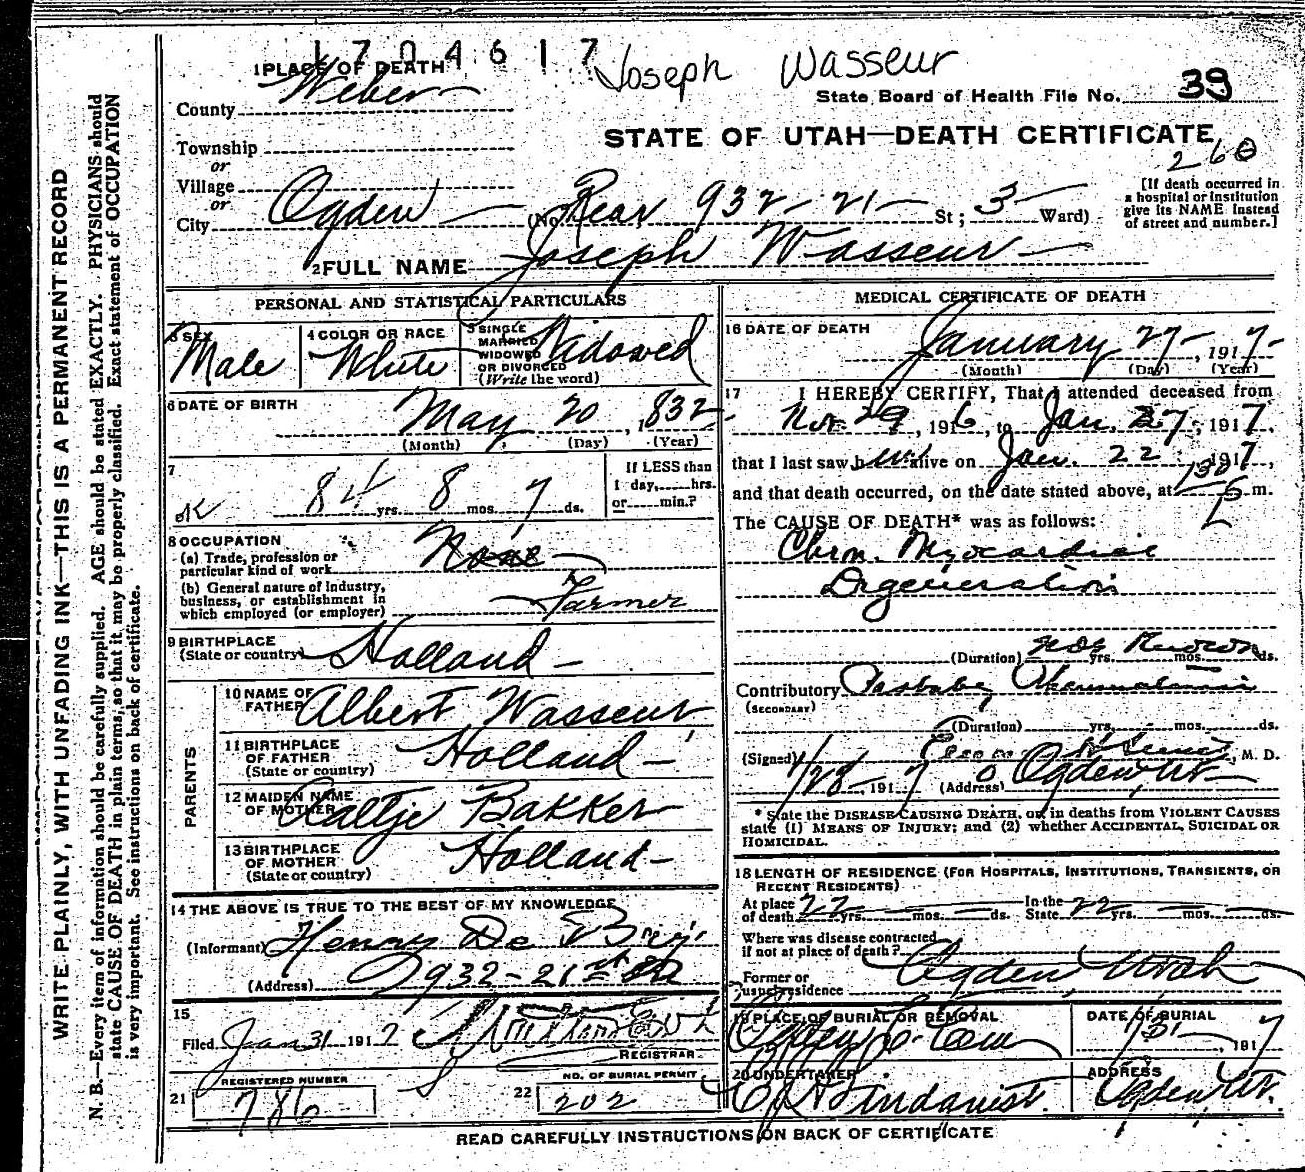 1704617
Joseph Wasseur
1 PLACE OF DEATH
County Weber
State Board of Health File No. 39
Township
or
Village
or
City Ogden
STATE OF UTAH—DEATH CERTIFICATE
260
(No. Rear 932-21- St; 3 Ward)
[If death occurred in
a hospital or institution
give its NAME instead
of street and number.]
2 FULL NAME Joseph Wasseur
PERSONAL AND STATISTICAL PARTICULARS
3 SEX
Male
4 COLOR OR RACE
White
5 SINGLE
MARRIED
WIDOWED
OR DIVORCED
(Write the word)
Widowed
6 DATE OF BIRTH
May 20, 1832
(Month) (Day) (Year)
7
84 yrs. 8 mos. 7 ds.
If LESS than
1 day,......hrs.
or......min.?
OK
8 OCCUPATION
(a) Trade, profession or
particular kind of work None
(b) General nature of industry,
business, or establishment in
which employed (or employer) Farmer
9 BIRTHPLACE
(State or country) Holland
PARENTS
10 NAME OF
FATHER Albert Wasseur
11 BIRTHPLACE
OF FATHER
(State or country) Holland
12 MAIDEN NAME
OF MOTHER Bakker
13 BIRTHPLACE
OF MOTHER
(State or country) Holland
14 THE ABOVE IS TRUE TO THE BEST OF MY KNOWLEDGE
(Informant) Henry De
(Address) 932-21st
15
Filed Jan 31 1917
REGISTRAR
REGISTERED NUMBER
21 786
NO. OF BURIAL PERMIT
22 202
MEDICAL CERTIFICATE OF DEATH
16 DATE OF DEATH
January 27, 1917
(Month) (Day) (Year)
17 I HEREBY CERTIFY, That I attended deceased from
Nov. 29, 1916, to Jan. 27, 1917,
that I last saw him alive on Jan. 22 1917,
and that death occurred, on the date stated above, at 130 m.
The CAUSE OF DEATH* was as follows:
Chron. Myocardiac
Degeneration
(Duration) not known yrs. mos. ds.
Contributory
(SECONDARY)
(Duration) yrs. mos. ds.
(Signed) M. D.
1/28-1917 (Address) Ogden, Ut.
* State the DISEASE CAUSING DEATH, or, in deaths from VIOLENT CAUSES
state (1) MEANS OF INJURY; and (2) whether ACCIDENTAL, SUICIDAL OR
HOMICIDAL.
18 LENGTH OF RESIDENCE (FOR HOSPITALS, INSTITUTIONS, TRANSIENTS, OR
RECENT RESIDENTS)
At place
of death 22 yrs. mos. ds.
In the
State 22 yrs. mos. ds.
Where was disease contracted
if not at place of death?
Former or
usual residence Ogden, Utah
19 PLACE OF BURIAL OR REMOVAL
Ogden Cem
DATE OF BURIAL
1/31, 1917
20 UNDERTAKER
Lindquist.
ADDRESS
Ogden, Ut.
READ CAREFULLY INSTRUCTIONS ON BACK OF CERTIFICATE
WRITE PLAINLY, WITH UNFADING INK—THIS IS A PERMANENT RECORD
N. B.—Every item of information should be carefully supplied. AGE should be stated EXACTLY. PHYSICIANS should
state CAUSE OF DEATH in plain terms, so that it may be properly classified. Exact statement of OCCUPATION
is very important. See instructions on back of certificate.